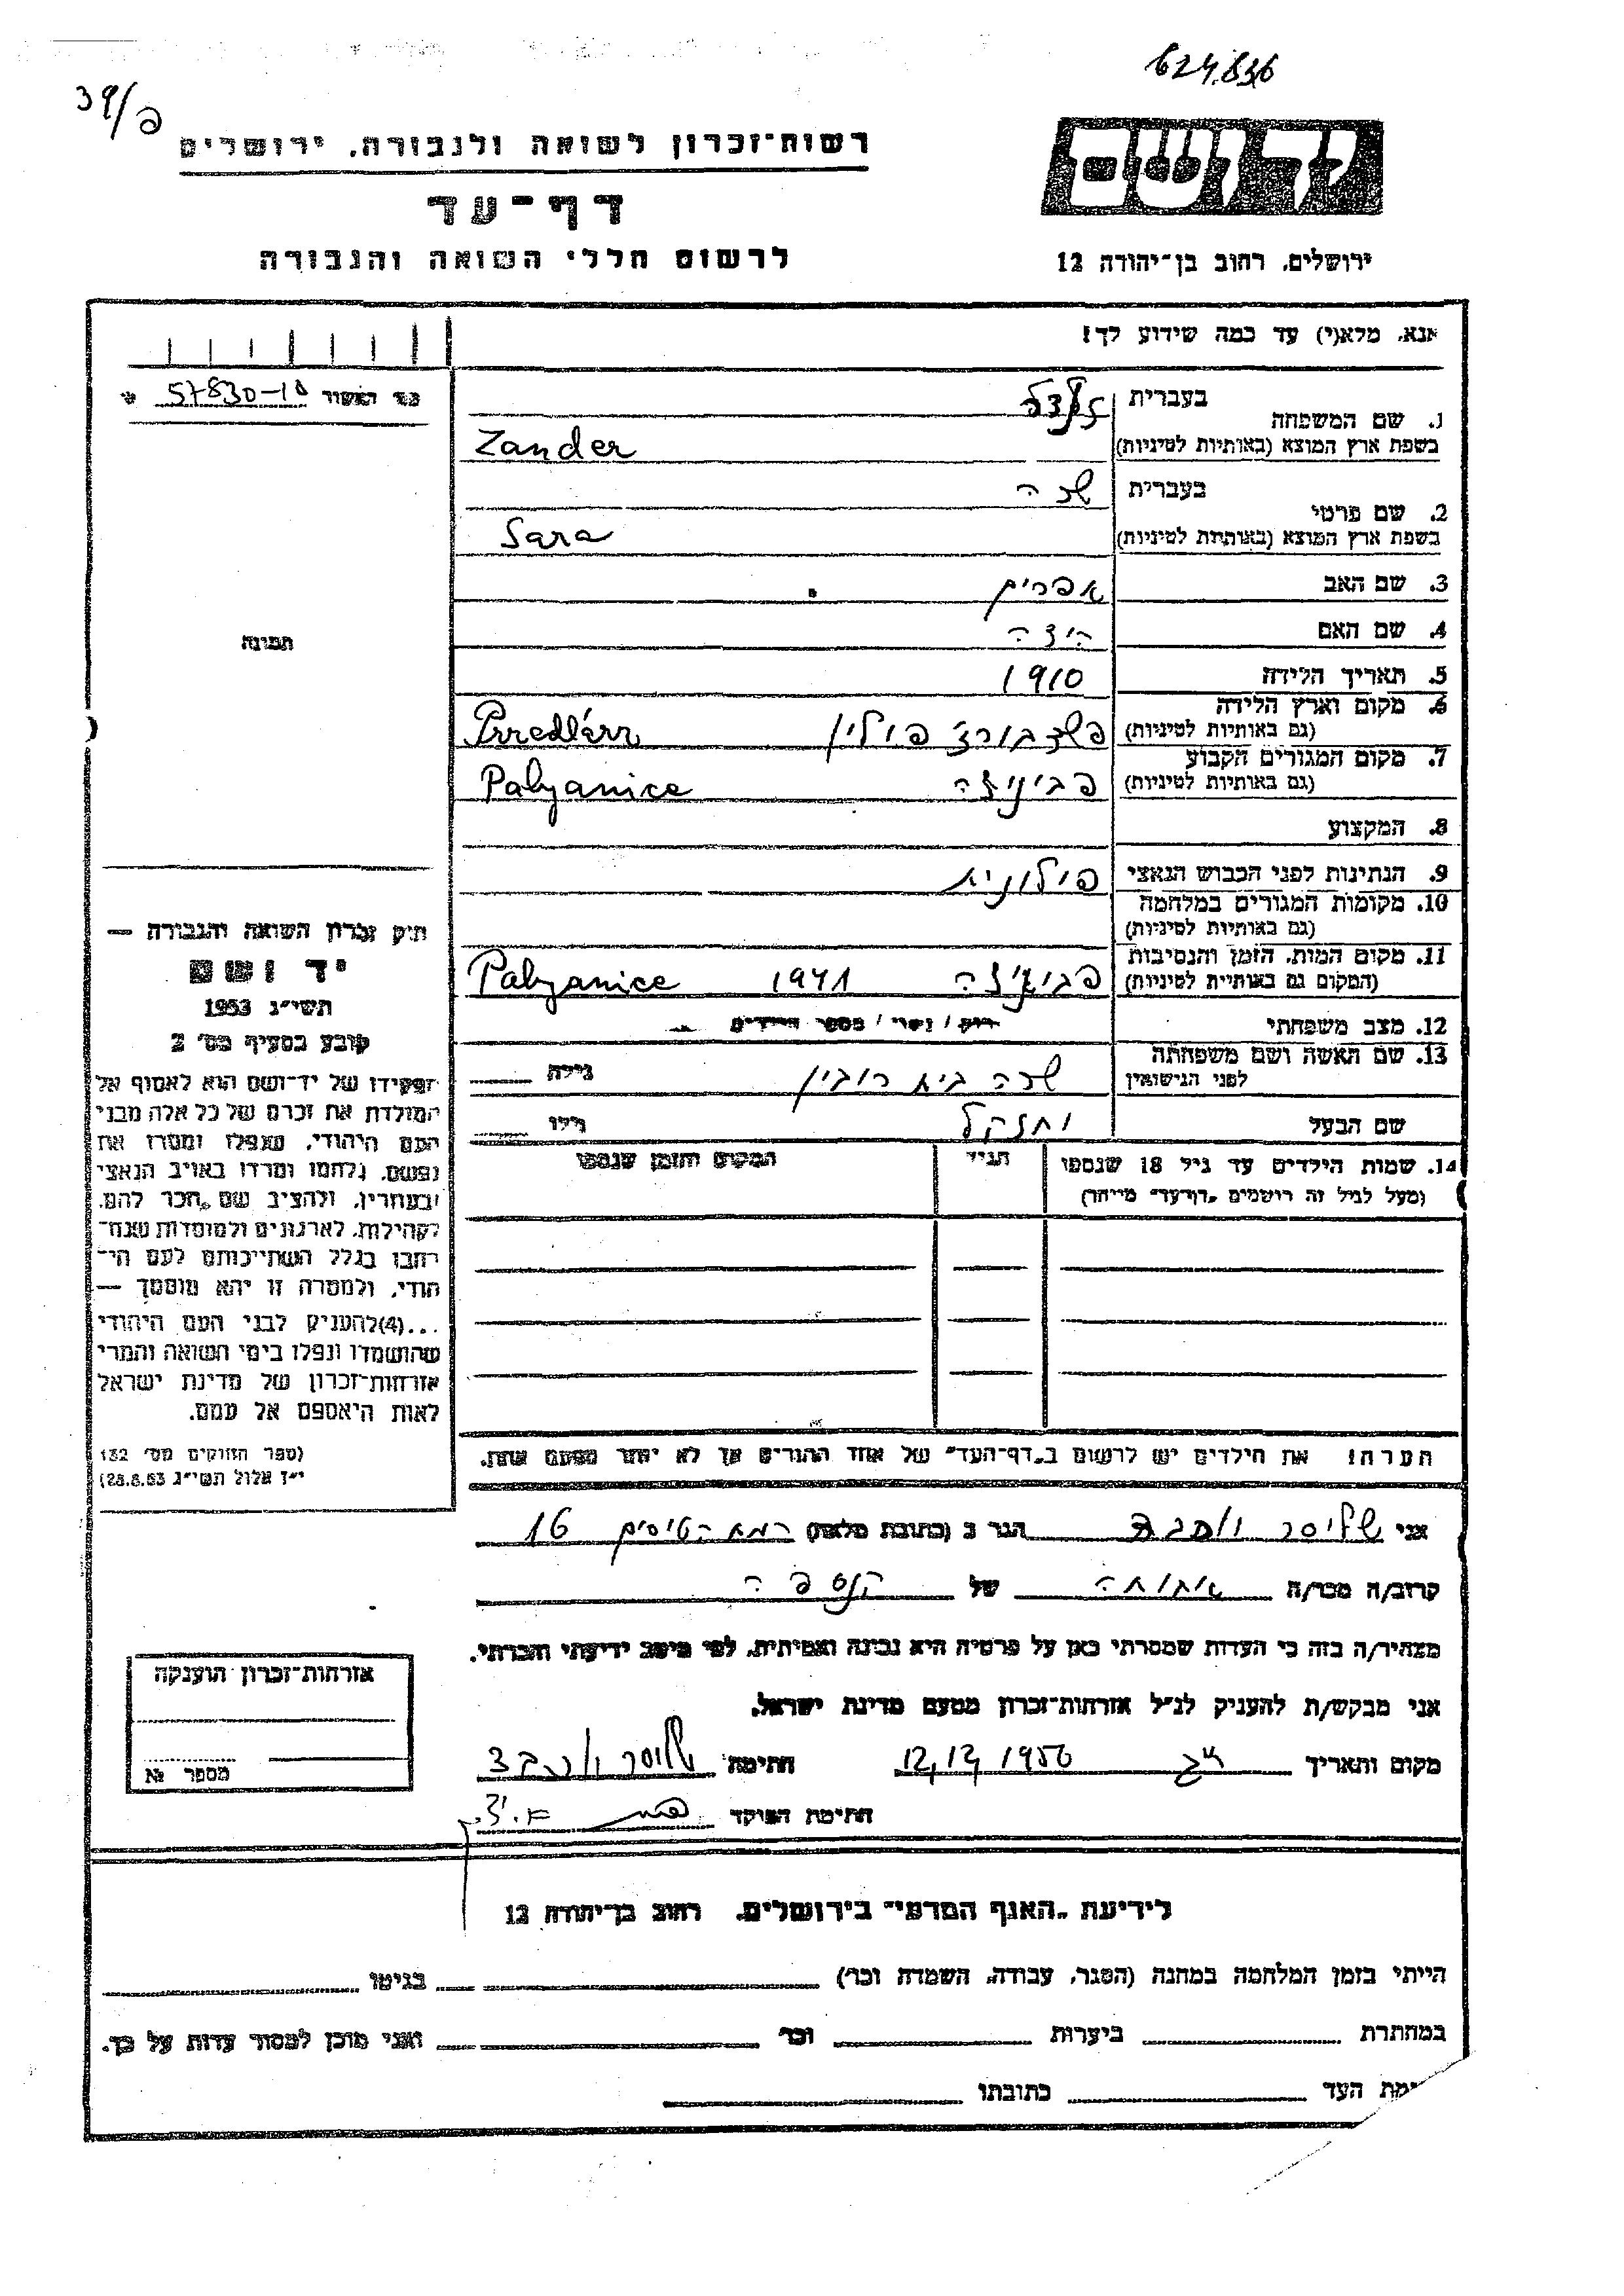 624836
39/פ
רשות-זכרון לשואה ולגבורה, ירושלים
יד ושם
דף-עד
לרשום חללי השואה והגבורה
ירושלים, רחוב בן-יהודה 12
אנא, מלא(י) עד כמה שידוע לך!
מס' האשור 57830-10
1. שם המשפחה בעברית
בשפת ארץ המוצא (באותיות לטיניות) Zander
2. שם פרטי בעברית שרה
בשפת ארץ המוצא (באותיות לטיניות) Sara
3. שם האב אפרים
4. שם האם הינדה
5. תאריך הלידה 1910
6. מקום וארץ הלידה
(גם באותיות לטיניות) פולין
7. מקום המגורים הקבוע
(גם באותיות לטיניות) Pabyanice
8. המקצוע
9. הנתינות לפני הכבוש הנאצי פולונית
10. מקומות המגורים במלחמה
(גם באותיות לטיניות)
11. מקום המות, הזמן והנסיבות
(המקום גם באותיות לטיניות) 1941 Pabyanice
12. מצב משפחתי רוק / נשוי / מספר הילדים
13. שם האשה ושם משפחתה
לפני הנישואין שרה בית רובין גילה
שם הבעל יחזקל גילו
14. שמות הילדים עד גיל 18 שנספו
(מעל לגיל זה רושמים "דף-עד" מיוחד)
הגיל
המקום והזמן שנספו
תמונה
חוק זכרון השואה והגבורה —
יד ושם
תשי"ג 1953
קובע בסעיף מס' 2
תפקידו של יד-ושם הוא לאסוף אל
המולדת את זכרם של כל אלה מבני
העם היהודי, שנפלו ומסרו את
נפשם, נלחמו ומרדו באויב הנאצי
ובעוזריו, ולהציב שם וזכר להם,
לקהילות, לארגונים ולמוסדות שנח-
רבו בגלל השתייכותם לעם הי-
הודי, ולמטרה זו יהא מוסמך —
...(4)להעניק לבני העם היהודי
שהושמדו ונפלו בימי השואה והמרי
אזרחות-זכרון של מדינת ישראל
לאות היאספם אל עמם.
(ספר החוקים מס' 132
י"ז אלול תשי"ג 28.8.53)
הערה! את הילדים יש לרשום ב"דף-העד" של אחד ההורים אך לא יותר מפעם אחת.
אני שליסר הגר ב (כתובת מלאה) 16
קרוב/ה מכר/ה אחותה של הנספה
מצהיר/ה בזה כי העדות שמסרתי כאן על פרטיה היא נכונה ואמיתית, לפי מיטב ידיעתי והכרתי.
אני מבקש/ת להעניק לנ"ל אזרחות-זכרון מטעם מדינת ישראל.
מקום ותאריך 12,12 1956 חתימה
חתימת הפוקד
אזרחות-זכרון הוענקה
מספר №
לידיעת "האגף המדעי" בירושלים, רחוב בן-יהודה 12
הייתי בזמן המלחמה במחנה (הסגר, עבודה, השמדה וכו') בגיטו
במחתרת ביערות וכו' ואני מוכן למסור עדות על כך.
ימת העד כתובתו